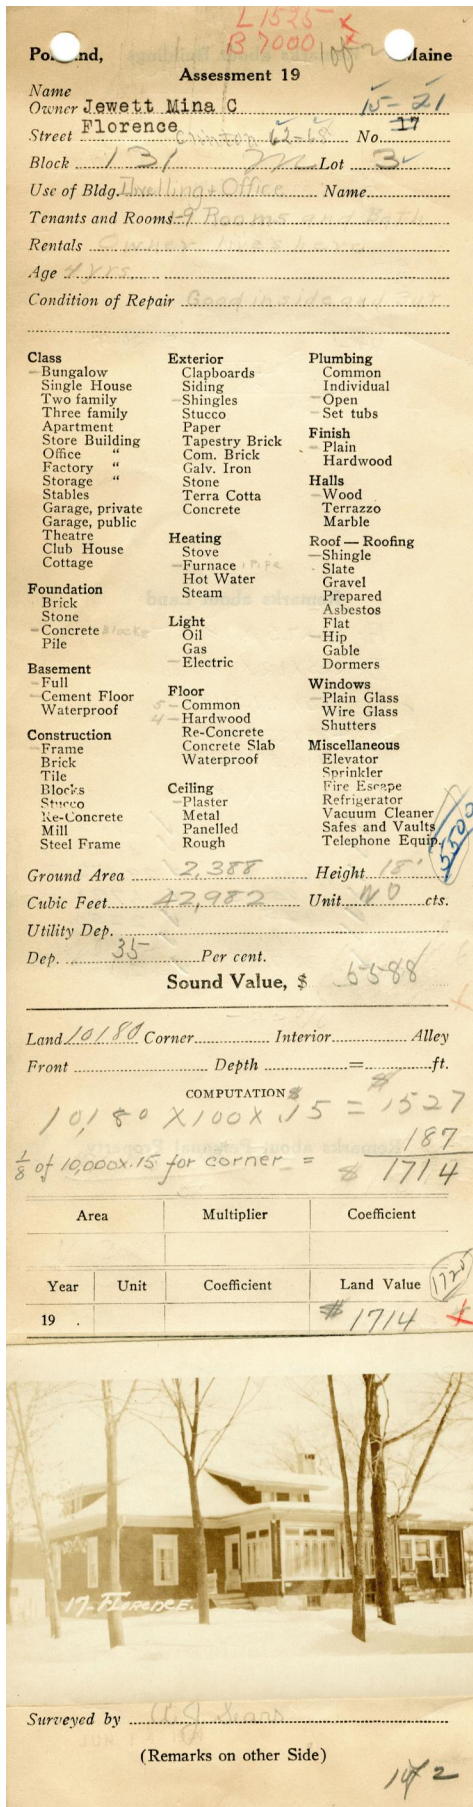 L 1525 X
B 7000 X
Portland, Maine
Assessment 19
Name
Owner Jewett Mina C 15-21
Street Florence Clinton 62-68 No. 17
Block 131 Lot 3
Use of Bldg. Dwelling + Office Name
Tenants and Rooms 1-9 Rooms and Bath
Rentals Owner lives here
Age 4 yrs
Condition of Repair Good inside and out
Class
Bungalow
Single House
Two family
Three family
Apartment
Store Building
Office "
Factory "
Storage "
Stables
Garage, private
Garage, public
Theatre
Club House
Cottage
Foundation
Brick
Stone
Concrete Blocks
Pile
Basement
Full
Cement Floor
Waterproof
Construction
Frame
Brick
Tile
Blocks
Stucco
Re-Concrete
Mill
Steel Frame
Exterior
Clapboards
Siding
Shingles
Stucco
Paper
Tapestry Brick
Com. Brick
Galv. Iron
Stone
Terra Cotta
Concrete
Heating
Stove
Furnace 1 Pipe
Hot Water
Steam
Light
Oil
Gas
Electric
Floor
5 - Common
4 - Hardwood
Re-Concrete
Concrete Slab
Waterproof
Ceiling
Plaster
Metal
Panelled
Rough
Plumbing
Common
Individual
Open
Set tubs
Finish
Plain
Hardwood
Halls
Wood
Terrazzo
Marble
Roof — Roofing
Shingle
Slate
Gravel
Prepared
Asbestos
Flat
Hip
Gable
Dormers
Windows
Plain Glass
Wire Glass
Shutters
Miscellaneous
Elevator
Sprinkler
Fire Escape
Refrigerator
Vacuum Cleaner
Safes and Vaults
Telephone Equip.
5500
Ground Area 2,388 Height 18'
Cubic Feet 42,982 Unit cts.
Utility Dep.
Dep. 35 Per cent.
Sound Value, $ 5588
Land 10180 Corner Interior Alley
Front Depth = ft.
COMPUTATION $
10,180 X 100 X .15 = $1527
1/8 of 10,000 x .15 for corner = 187
$ 1714
Area Multiplier Coefficient
Year Unit Coefficient Land Value 1725
19 . $1714 X
17-FLORENCE.
Surveyed by A J Sears
(Remarks on other Side)